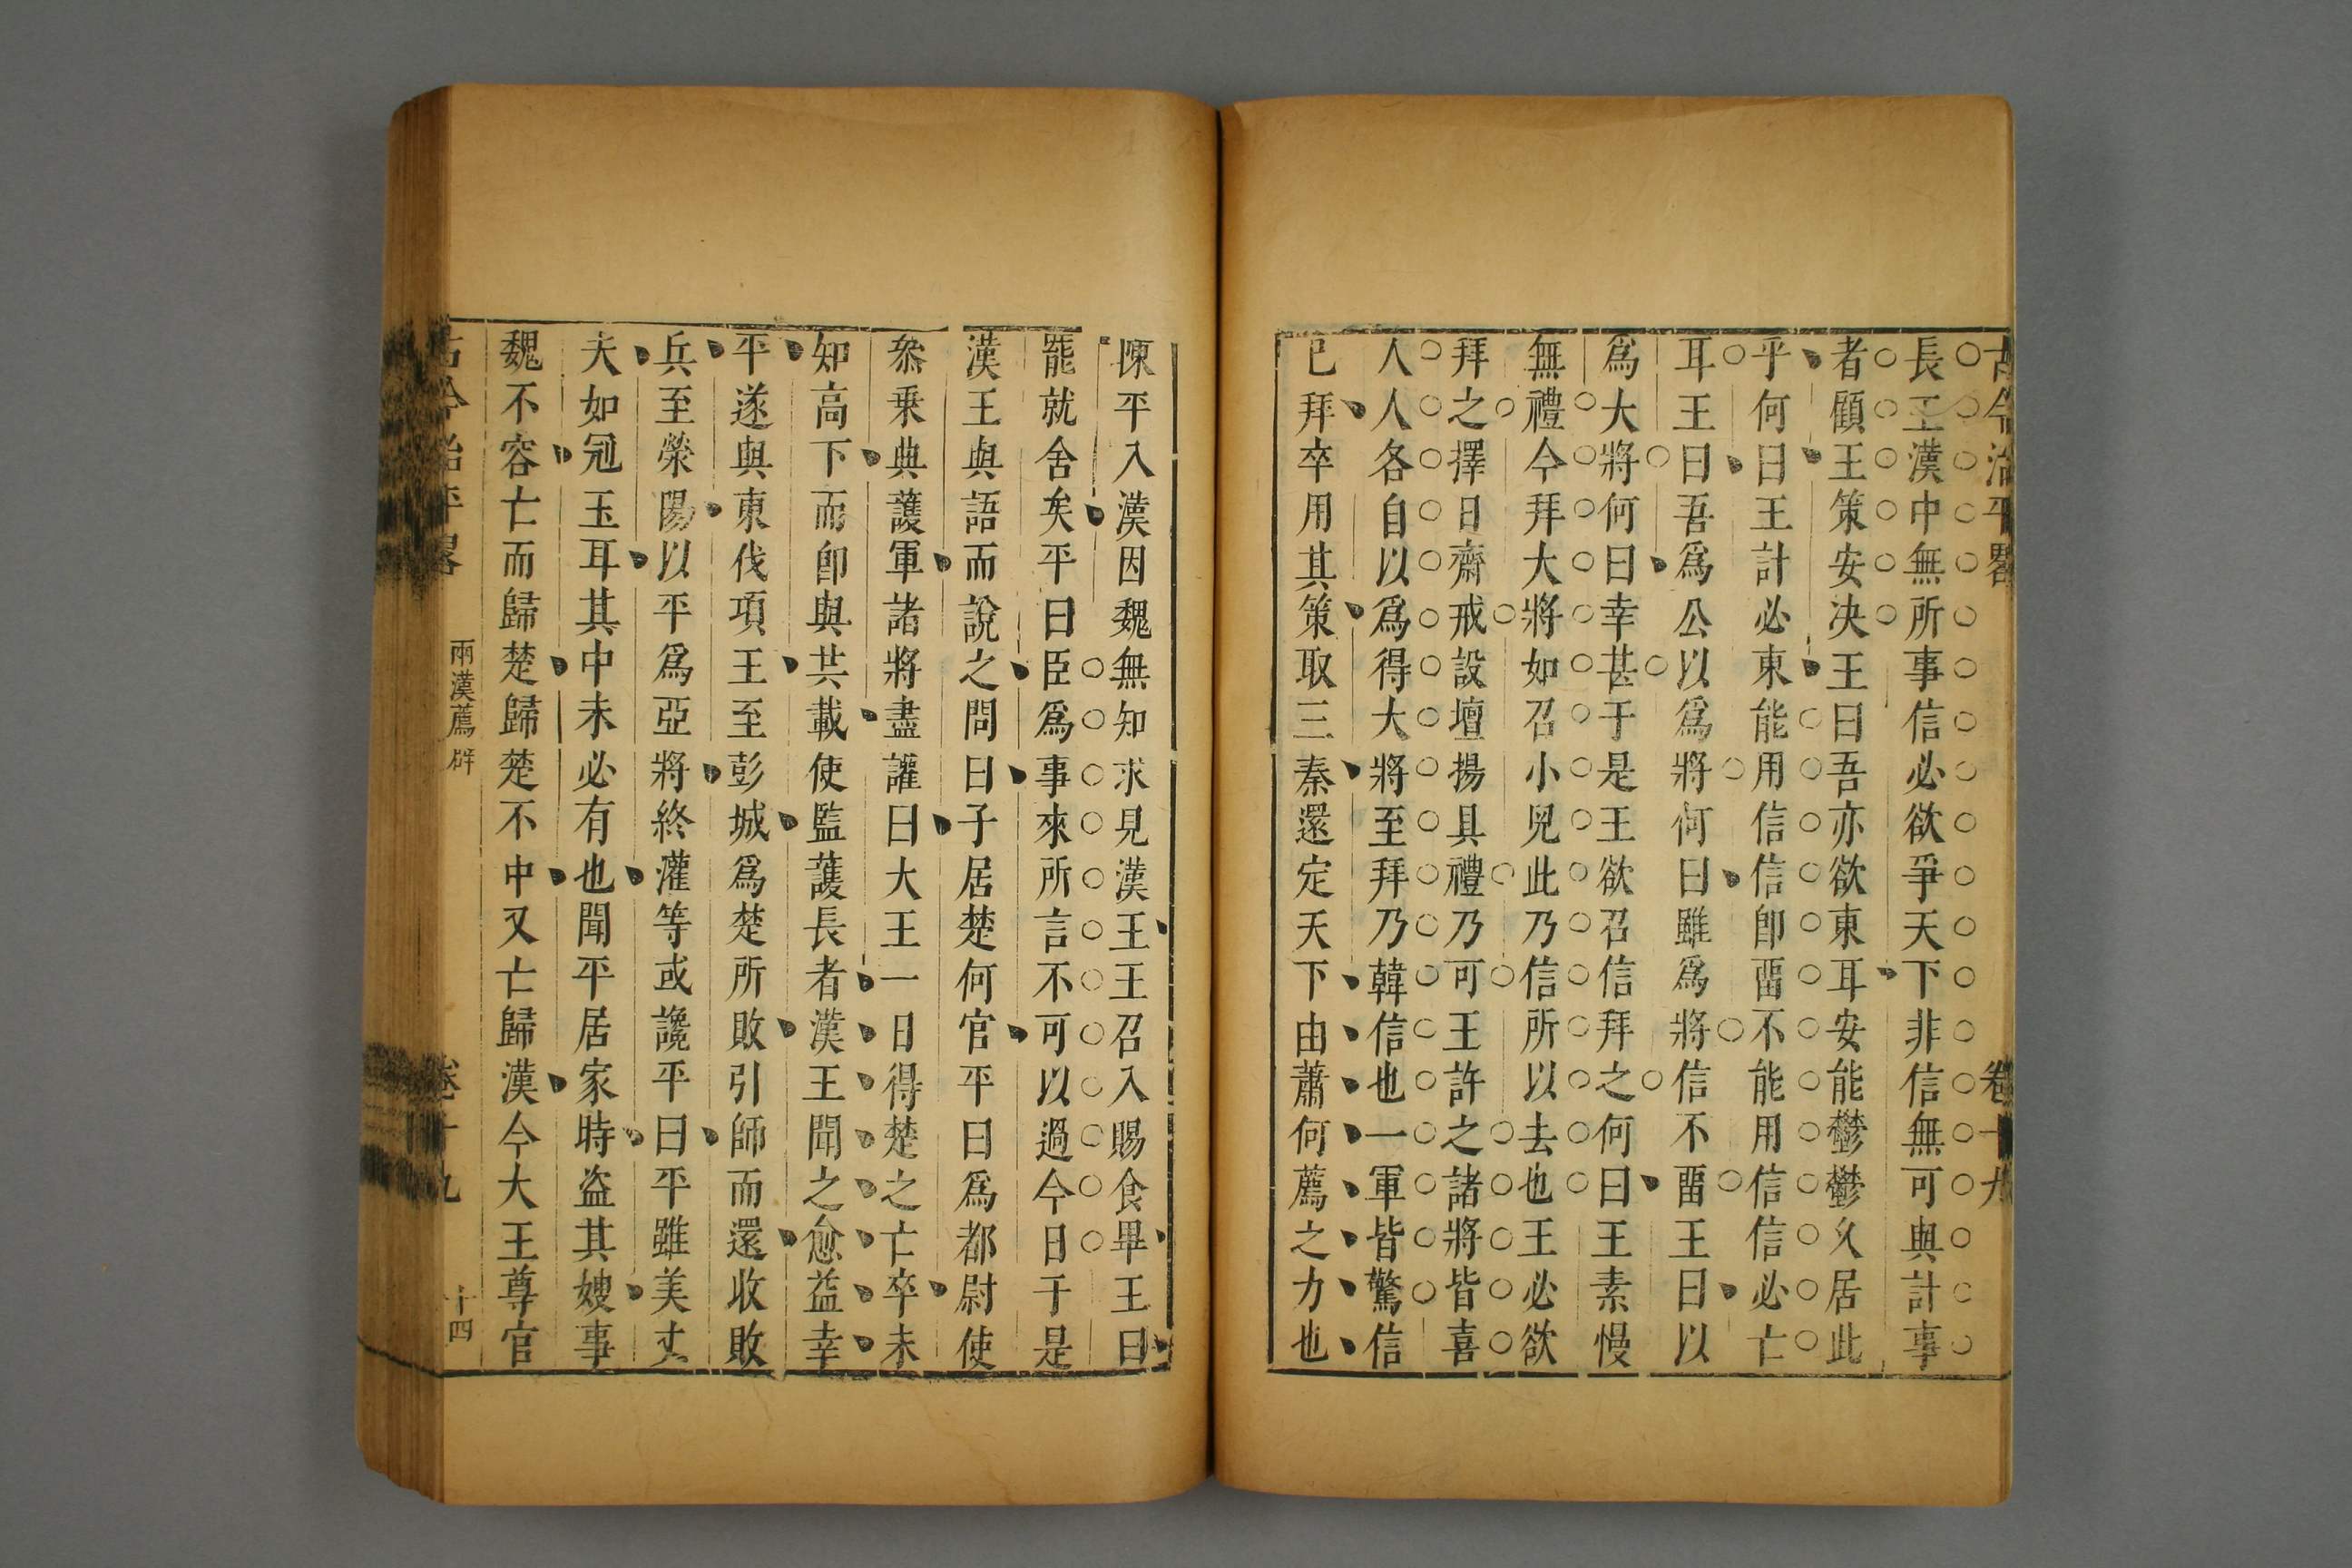 古今治平畧 卷十九
長王漢中無所事信必欲爭天下非信無可與計事
者顧王策安决王曰吾亦欲東耳安能鬱鬱久居此
乎何曰王計必東能用信信卽畱不能用信信必亡
耳王曰吾爲公以爲將何曰雖爲將信不畱王曰以
爲大將何曰幸甚于是王欲召信拜之何曰王素慢
無禮今拜大將如召小兒此乃信所以去也王必欲
拜之擇日齋戒設壇揚具禮乃可王許之諸將皆喜
人人各自以爲得大將至拜乃韓信也一軍皆驚信
已拜卒用其策取三秦還定天下由蕭何薦之力也
陳平入漢因魏無知求見漢王王召入賜食畢王曰
罷就舍矣平曰臣爲事來所言不可以過今日于是
漢王與語而說之問曰子居楚何官平曰爲都尉使
叅乗典護軍諸將盡讙曰大王一日得楚之亡卒未
知高下而卽與共載使監護長者漢王聞之愈益幸
平遂與東伐項王至彭城爲楚所敗引師而還收敗
兵至榮陽以平爲亞將終灌等或讒平曰平雖美丈
夫如冠玉耳其中未必有也聞平居家時盗其嫂事
魏不容亡而歸楚歸楚不中又亡歸漢今大王尊官
古今治平畧 兩漢薦辟 卷十九 十四